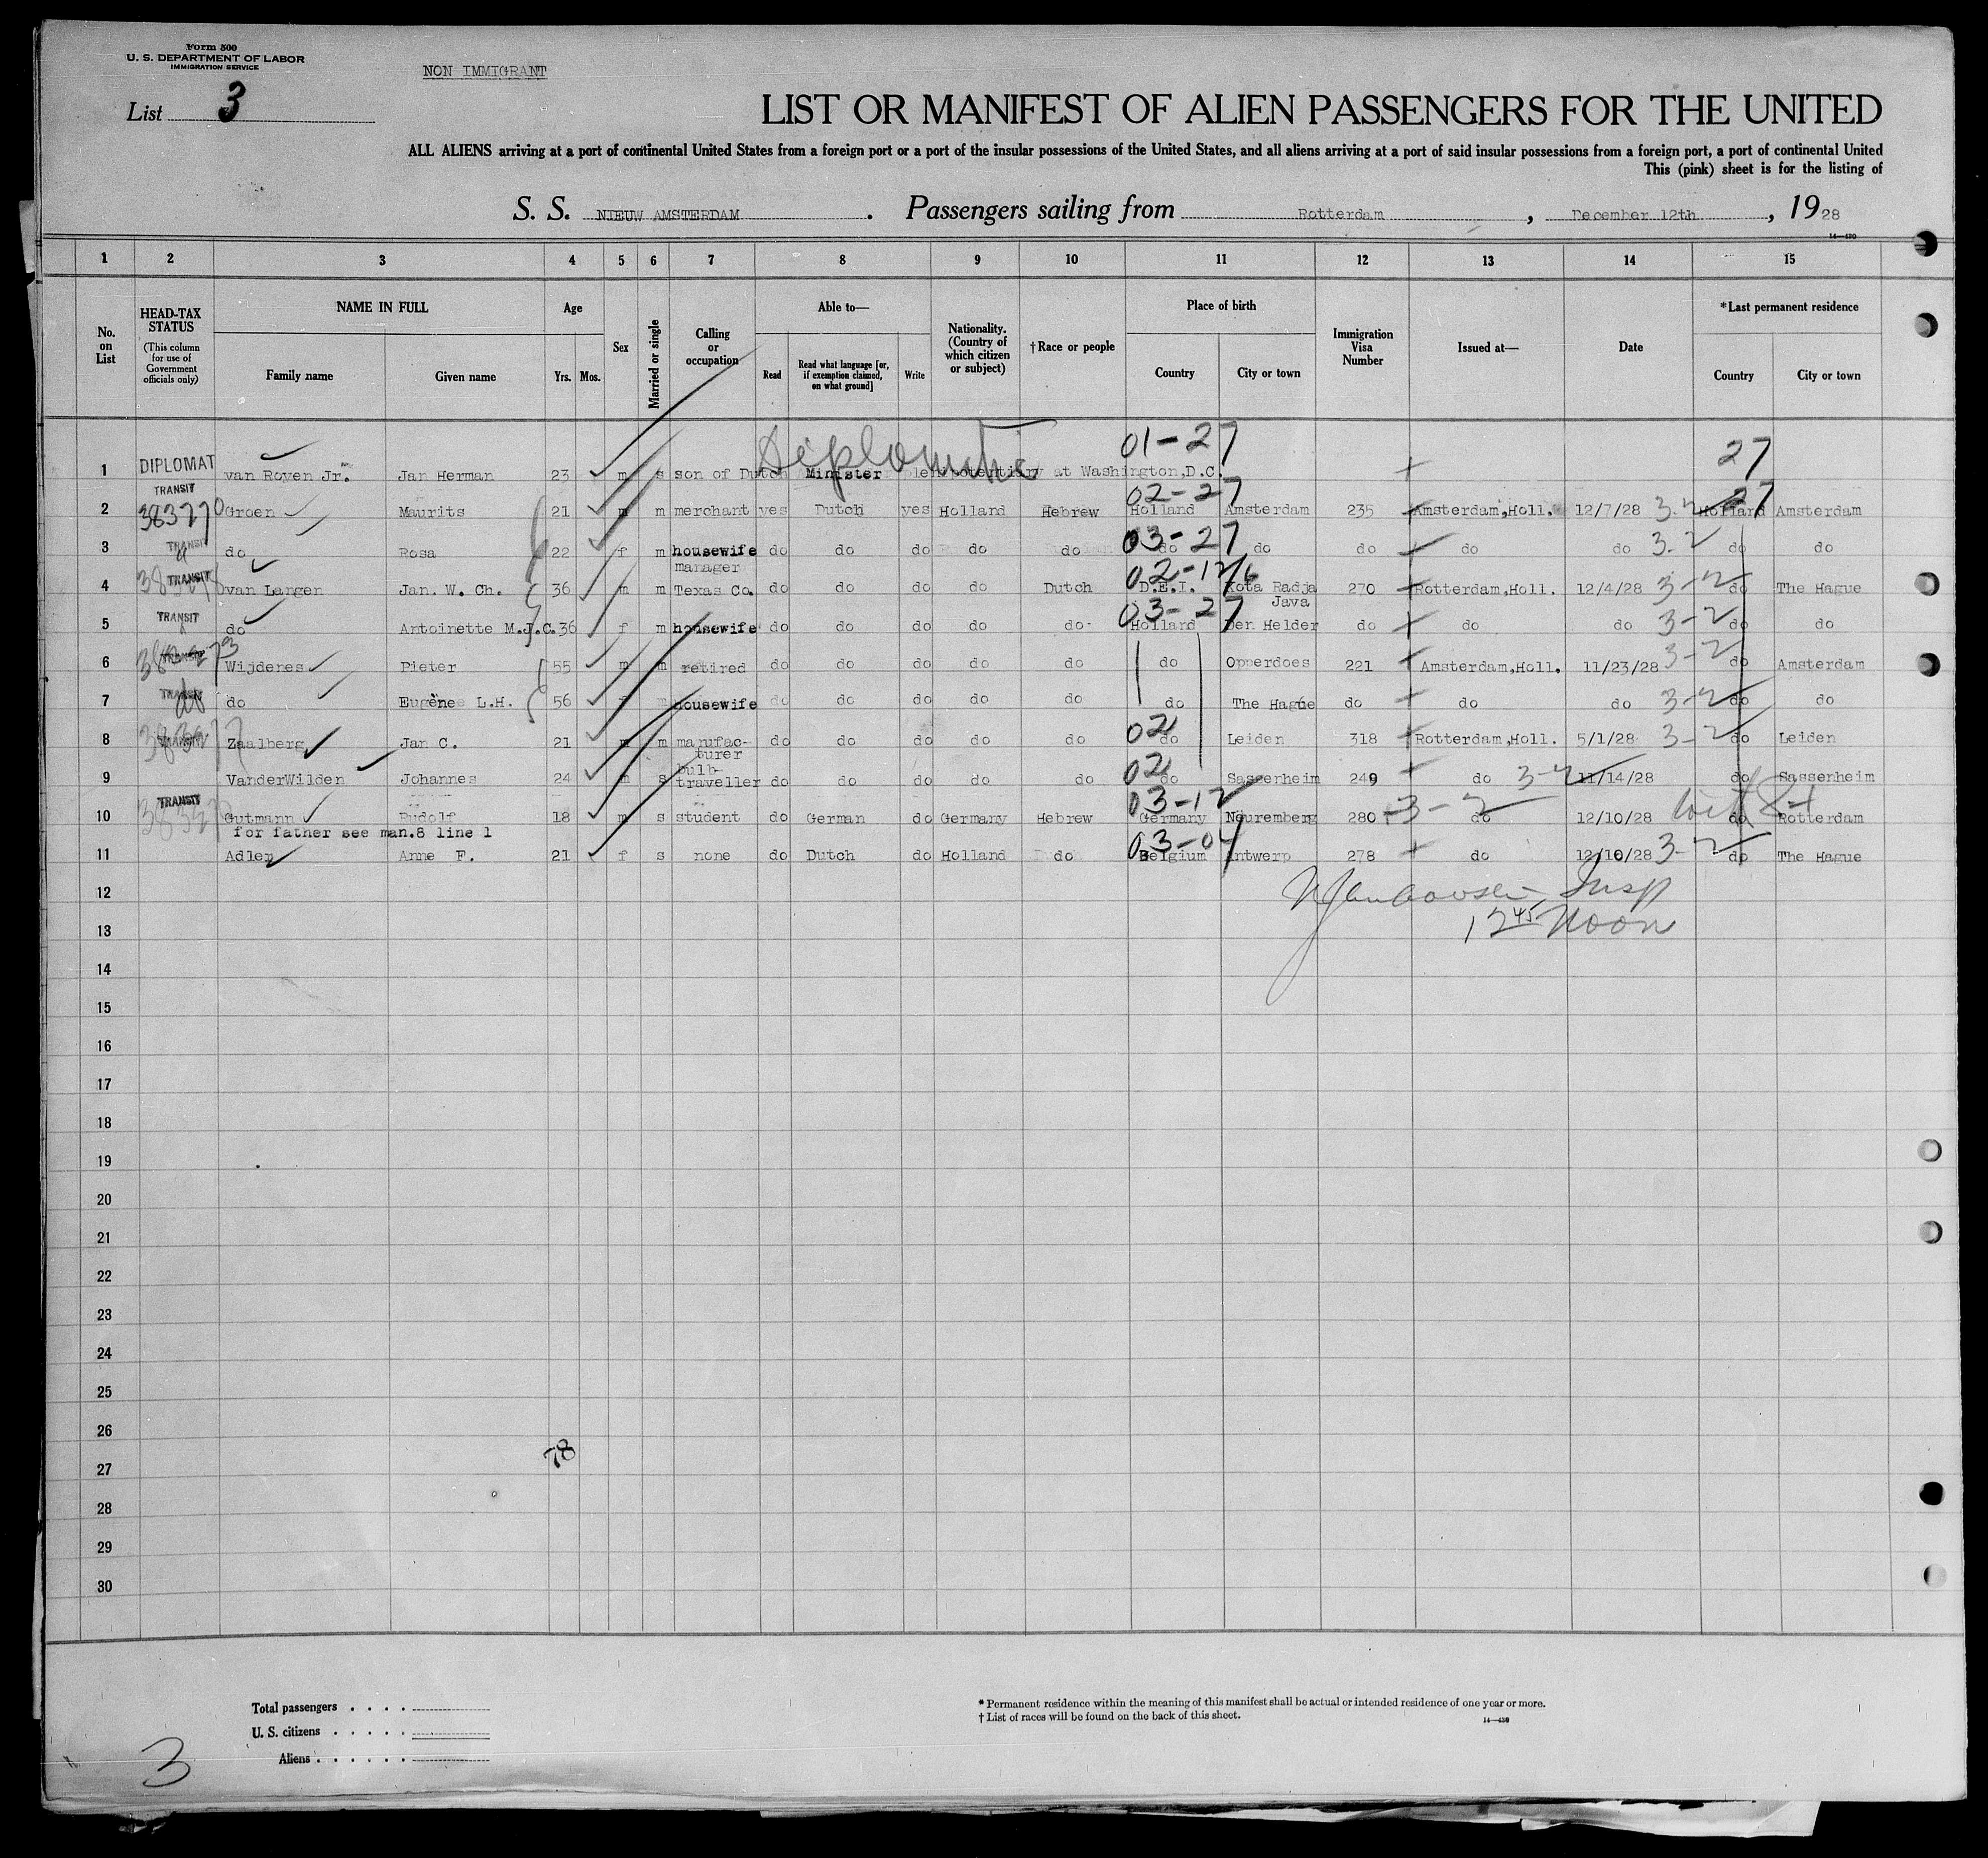 Form 500
U. S. DEPARTMENT OF LABOR
IMMIGRATION SERVICE
NON IMMIGRANT
List 3
LIST OR MANIFEST OF ALIEN PASSENGERS FOR THE UNITED
ALL ALIENS arriving at a port of continental United States from a foreign port or a port of the insular possessions of the United States, and all aliens arriving at a port of said insular possessions from a foreign port, a port of continental United
This (pink) sheet is for the listing of
S. S. NIEUW AMSTERDAM . Passengers sailing from Rotterdam , December 12th , 1928
14—430
1 2 3 4 5 6 7 8 9 10 11 12 13 14 15
No. on List
HEAD-TAX STATUS
(This column for use of Government officials only)
NAME IN FULL
Family name Given name
Age
Yrs. Mos.
Sex
Married or single
Calling or occupation
Able to—
Read
Read what language [or, if exemption claimed, on what ground]
Write
Nationality. (Country of which citizen or subject)
†Race or people
Place of birth
Country City or town
Immigration Visa Number
Issued at—
Date
*Last permanent residence
Country City or town
Diplomatic 01-27 27
1 DIPLOMAT van Royen Jr. Jan Herman 23 m s son of Dutch Minister plenipotentiary at Washington,D.C.
TRANSIT 02-27 27
2 383270 Groen Maurits 21 m m merchant yes Dutch yes Holland Hebrew Holland Amsterdam 235 Amsterdam,Holl. 12/7/28 3-2 Holland Amsterdam
TRANSIT 03-27
3 do Rosa 22 f m housewife do do do do do do do do do do 3-2 do do
manager 02-12/6
4 TRANSIT van Largen Jan. W. Ch. 36 m m Texas Co. do do do do Dutch D.E.I. Kota Radja 270 Rotterdam,Holl. 12/4/28 3-2 do The Hague
Java
TRANSIT 03-27
5 do Antoinette M.J.C. 36 f m housewife do do do do do Holland Den Helder do do do 3-2 do do
6 TRANSIT Wijdenes Pieter 55 m m retired do do do do do do Opperdoes 221 Amsterdam,Holl. 11/23/28 3-2 do Amsterdam
7 TRANSIT do do Eugène L.H. 56 f m housewife do do do do do do The Hague do do do 3-2 do do
8 TRANSIT Zaalberg Jan C. 21 m m manufac- do do do do do 02 do Leiden 318 Rotterdam,Holl. 5/1/28 3-2 do Leiden
turer
bulb-
9 VanderWilden Johannes 24 m s traveller do do do do do 02 do Sassenheim 249 do 3-2 11/14/28 do Sassenheim
TRANSIT 03-12
10 Gutmann Rudolf 18 m s student do German do Germany Hebrew Germany Neuremberg 280 3-2 do 12/10/28 do Rotterdam
for father see man.8 line 1
03-04
11 Adler Anne F. 21 f s none do Dutch do Holland do Belgium Antwerp 278 do 12/10/28 3-2 do The Hague
12
Insp
13
12 45 Noon
14
15
16
17
18
19
20
21
22
23
24
25
26
78
27
28
29
30
Total passengers
U. S. citizens
Aliens
* Permanent residence within the meaning of this manifest shall be actual or intended residence of one year or more.
† List of races will be found on the back of this sheet.
14—430
3